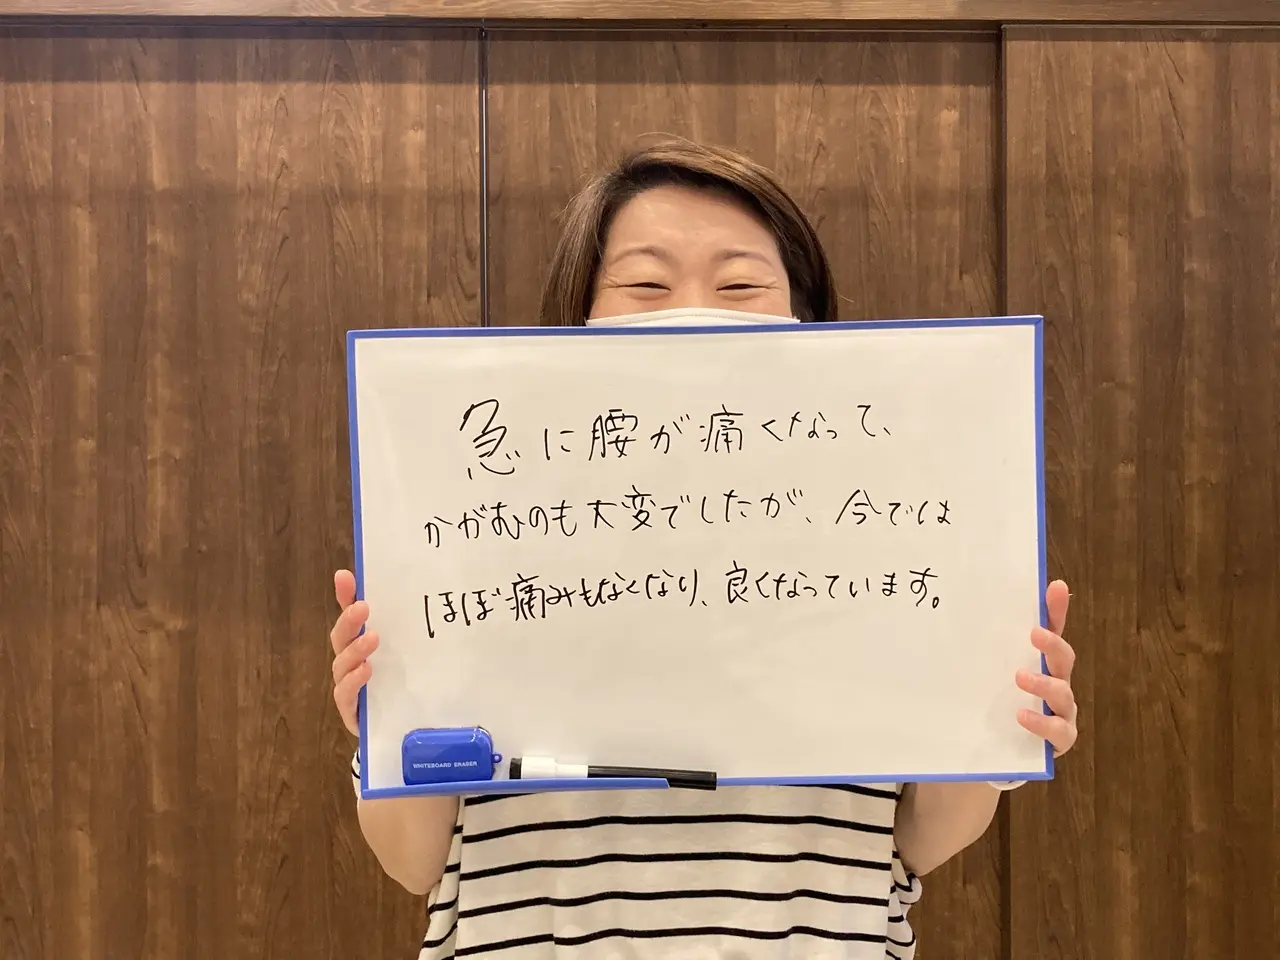 急に腰が痛くなって、
かがむのも大変でしたが、今では
ほぼ痛みもなくなり、良くなっています。
WHITEBOARD ERASER